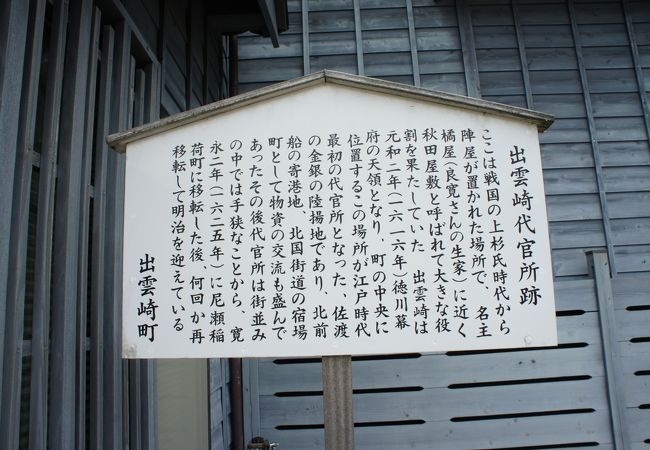 出雲崎代官所跡
ここは戦国の上杉氏時代から
陣屋が置かれた場所で、名主
橘屋(良寛さんの生家)に近く
秋田屋敷と呼ばれて大きな役
割を果たしていた。出雲崎は
元和二年(一六一六年)徳川幕
府の天領となり、町の中央に
位置するこの場所が江戸時代
最初の代官所となった、佐渡
の金銀の陸揚地であり、北前
船の寄港地、北国街道の宿場
町として物資の交流も盛んで
あったその後代官所は街並み
の中では手狭なことから、寛
永二年(一六二五年)に尼瀬稲
荷町に移転した後、何回か再
移転して明治を迎えている
出雲崎町